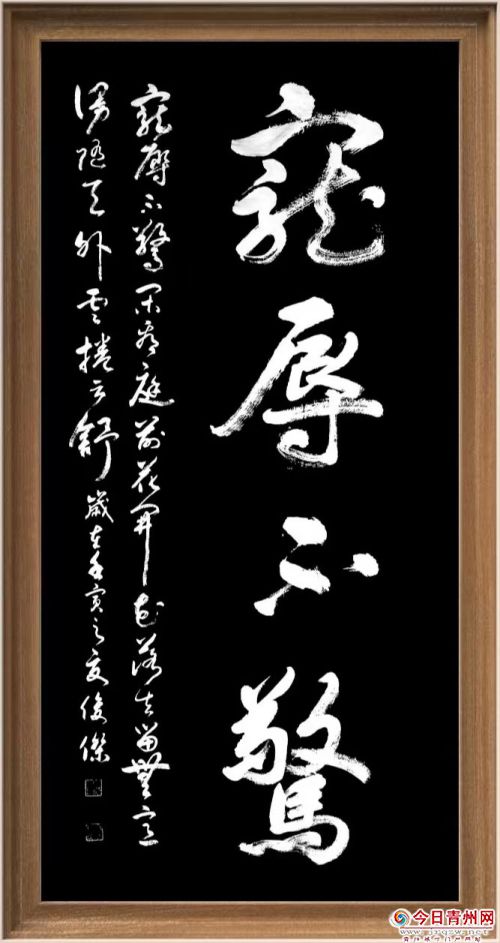 寵辱不驚
寵辱不驚閑看庭前花開花落去留無意
漫隨天外雲捲雲舒歲在壬寅之夏俊傑
今日青州网
www.jrqzw.net